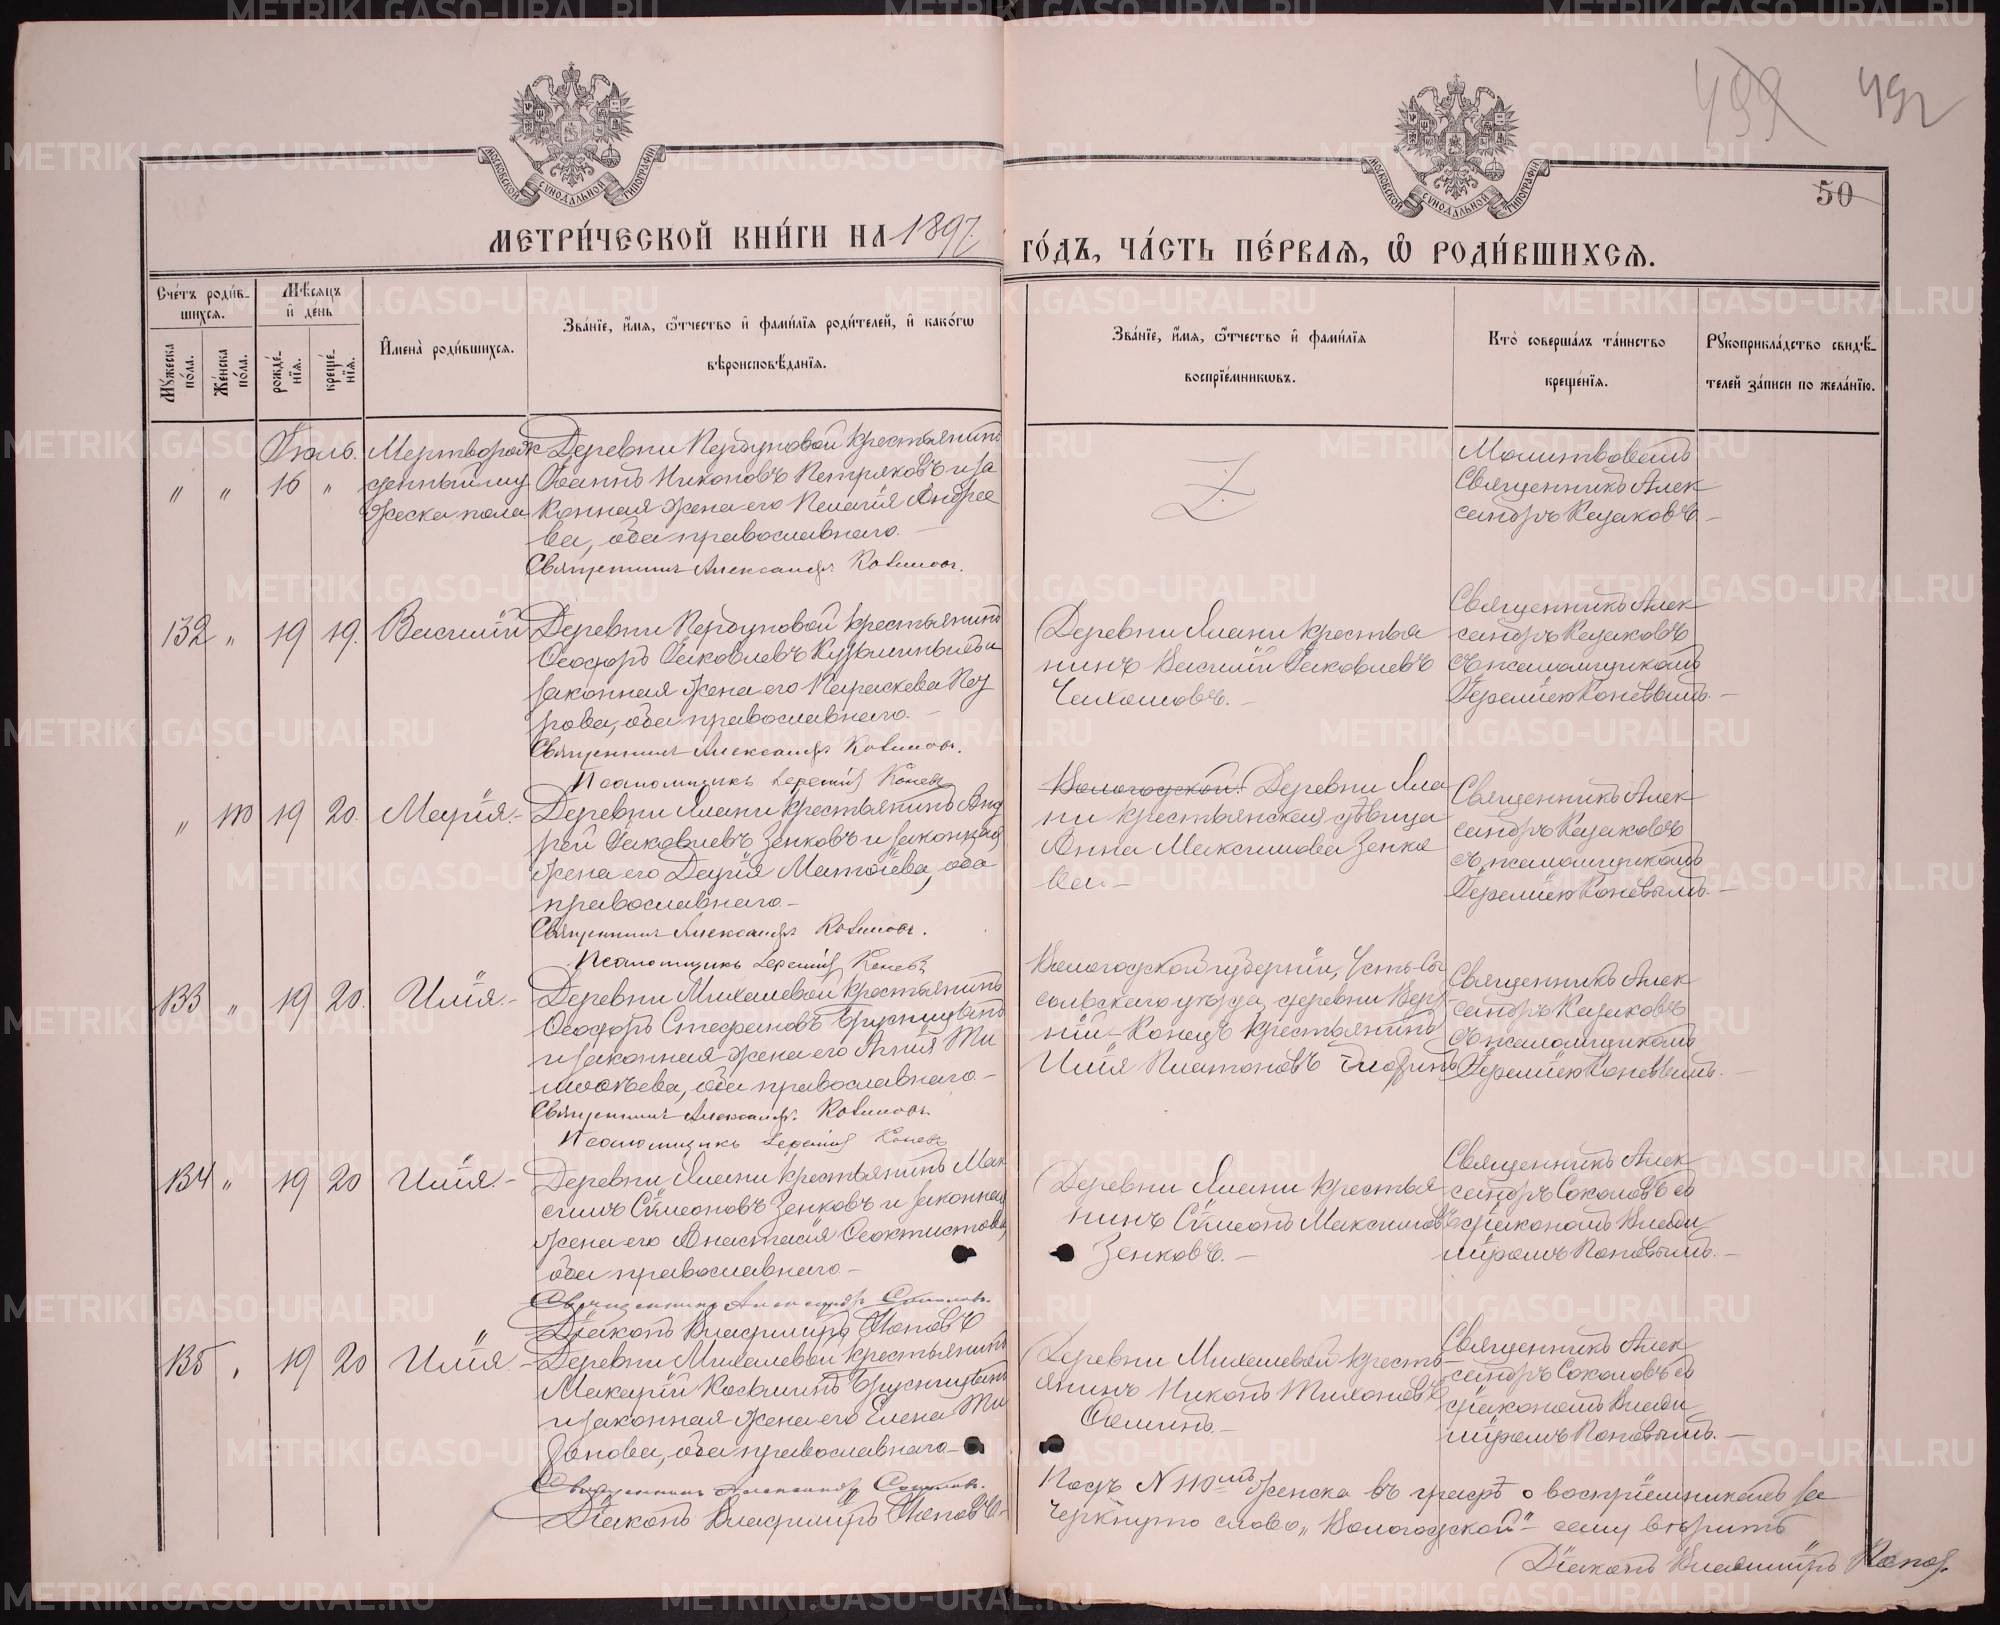 492
50
МОСКОВСКОЙ СУНОДАЛЬНОЙ ТИПОГРАФІИ
МОСКОВСКОЙ СУНОДАЛЬНОЙ ТИПОГРАФІИ
МЕТРИ́ЧЕСКОЙ КНИ́ГИ НА 1897
ГО́ДЪ, ЧА́СТЬ ПЕ́РВАѦ, Ѽ РОДИ́ВШИХСѦ.
Сче́тъ роди́в-
шихсѧ.
Мꙋ́жеска
по́ла.
Же́нска
по́ла.
Мѣ́сѧцъ
и̑ де́нь
рожде́-
нїѧ.
креще́-
нїѧ.
И̑мена̀ роди́вшихсѧ.
Зва́нїе, и҆́мѧ, ѻ҆́тчество и҆ фами́лїѧ роди́телей, и҆ како́гѡ
вѣроисповѣ́данїѧ.
Зва́нїе, и҆́мѧ, ѻ҆́тчество и҆ фами́лїѧ
воспрїе́мникѡвъ.
Кто̀ соверша́лъ та́инство
креще́нїѧ.
Рꙋкоприкла́дство свидѣ́-
телей за́писи по жела́нїю.
Іюль.
" " 16 "
Мерторож
денный му
жеска пола
Деревни крестьянинъ
Іоаннъ Никоновъ Петряковъ и за
конная жена его Пелагія Андрее
ва, оба православнаго.
Священникъ Александръ
Молитвовалъ
Священникъ Алек
сандръ Казаковъ
132 " 19 19. Василій
Деревни крестьянинъ
Ѳеодоръ Іаковлевъ Кузьминыхъ и
законная жена его Параскева Наз
рова, оба православнаго.
Священникъ Александръ
Псаломщикъ Іеремія Коневъ
Деревни Ялани крестья
нинъ Василій Іаковлевъ
Священникъ Алек
сандръ Казаковъ
съ псаломщикомъ
Іереміею Коневымъ.
" 110 19 20. Марія.
Деревни Ялани крестьянинъ Анд
рей Іаковлевъ Зенковъ и законная
жена его Дарія Матѳіева, оба
православнаго
Священникъ Александръ
Псаломщикъ Іеремія Коневъ
Вологодской. Деревни Яла
ни крестьянская дѣвица
Анна Максимова Зенко
ва.
Священникъ Алек
сандръ Казаковъ
съ псаломщикомъ
Іереміею Коневымъ.
133 " 19 20. Илія.
Деревни Михалевой крестьянинъ
Ѳеодоръ Стефановъ Брусницынъ
и законная жена его Агнія Ти
моѳеева, оба православнаго
Священникъ Александръ
Псаломщикъ Іеремія Коневъ
Вологодской губерніи, Усть-Сы
сольскаго уѣзда, деревни Верх
ній-Конецъ крестьянинъ
Илія Платоновъ
Священникъ Алек
сандръ Казаковъ
съ псаломщикомъ
Іереміею Коневымъ.
134 " 19 20 Илія.
Деревни Ялани крестьянинъ Мак
симъ Сѵмеоновъ Зенковъ и законная
жена его Анастасія Ѳеоктистова,
оба православнаго
Священникъ Александръ Соколовъ.
Діаконъ Владиміръ Поповъ
Деревни Ялани крестья
нинъ Сѵмеонъ Максимовъ
Зенковъ.
Священникъ Алек
сандръ Соколовъ со
діакономъ Влади
міромъ Поповымъ.
135 " 19 20 Илія.
Деревни Михалевой крестьянинъ
Макарій Косьминъ Брусницынъ
и законная жена его Елена Ти
ова, оба православнаго
Священникъ Александръ Соколовъ.
Діаконъ Владиміръ Поповъ
Деревни Михалевой кресть
янинъ Никонъ Тихоновъ
Ѳоминъ.
Священникъ Алек
сандръ Соколовъ со
діакономъ Влади
міромъ Поповымъ.
Подъ N 110мъ женска въ графѣ о воспріемникахъ за
черкнуто слово „Вологодской" сему вѣрить
Діаконъ Владиміръ Поповъ